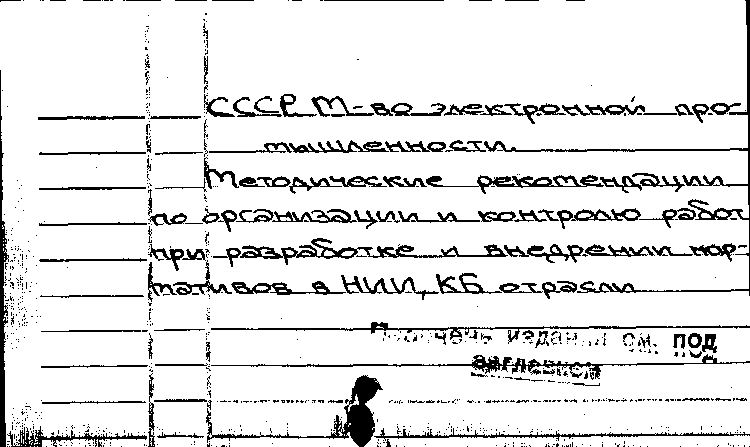 СССР М-во электронной про-
мышленности.
Методические рекомендации
по организации и контролю работ
при разработке и внедрении нор-
мативов в НИИ, КБ отрасли
Перечень изданий см. под
заглавием